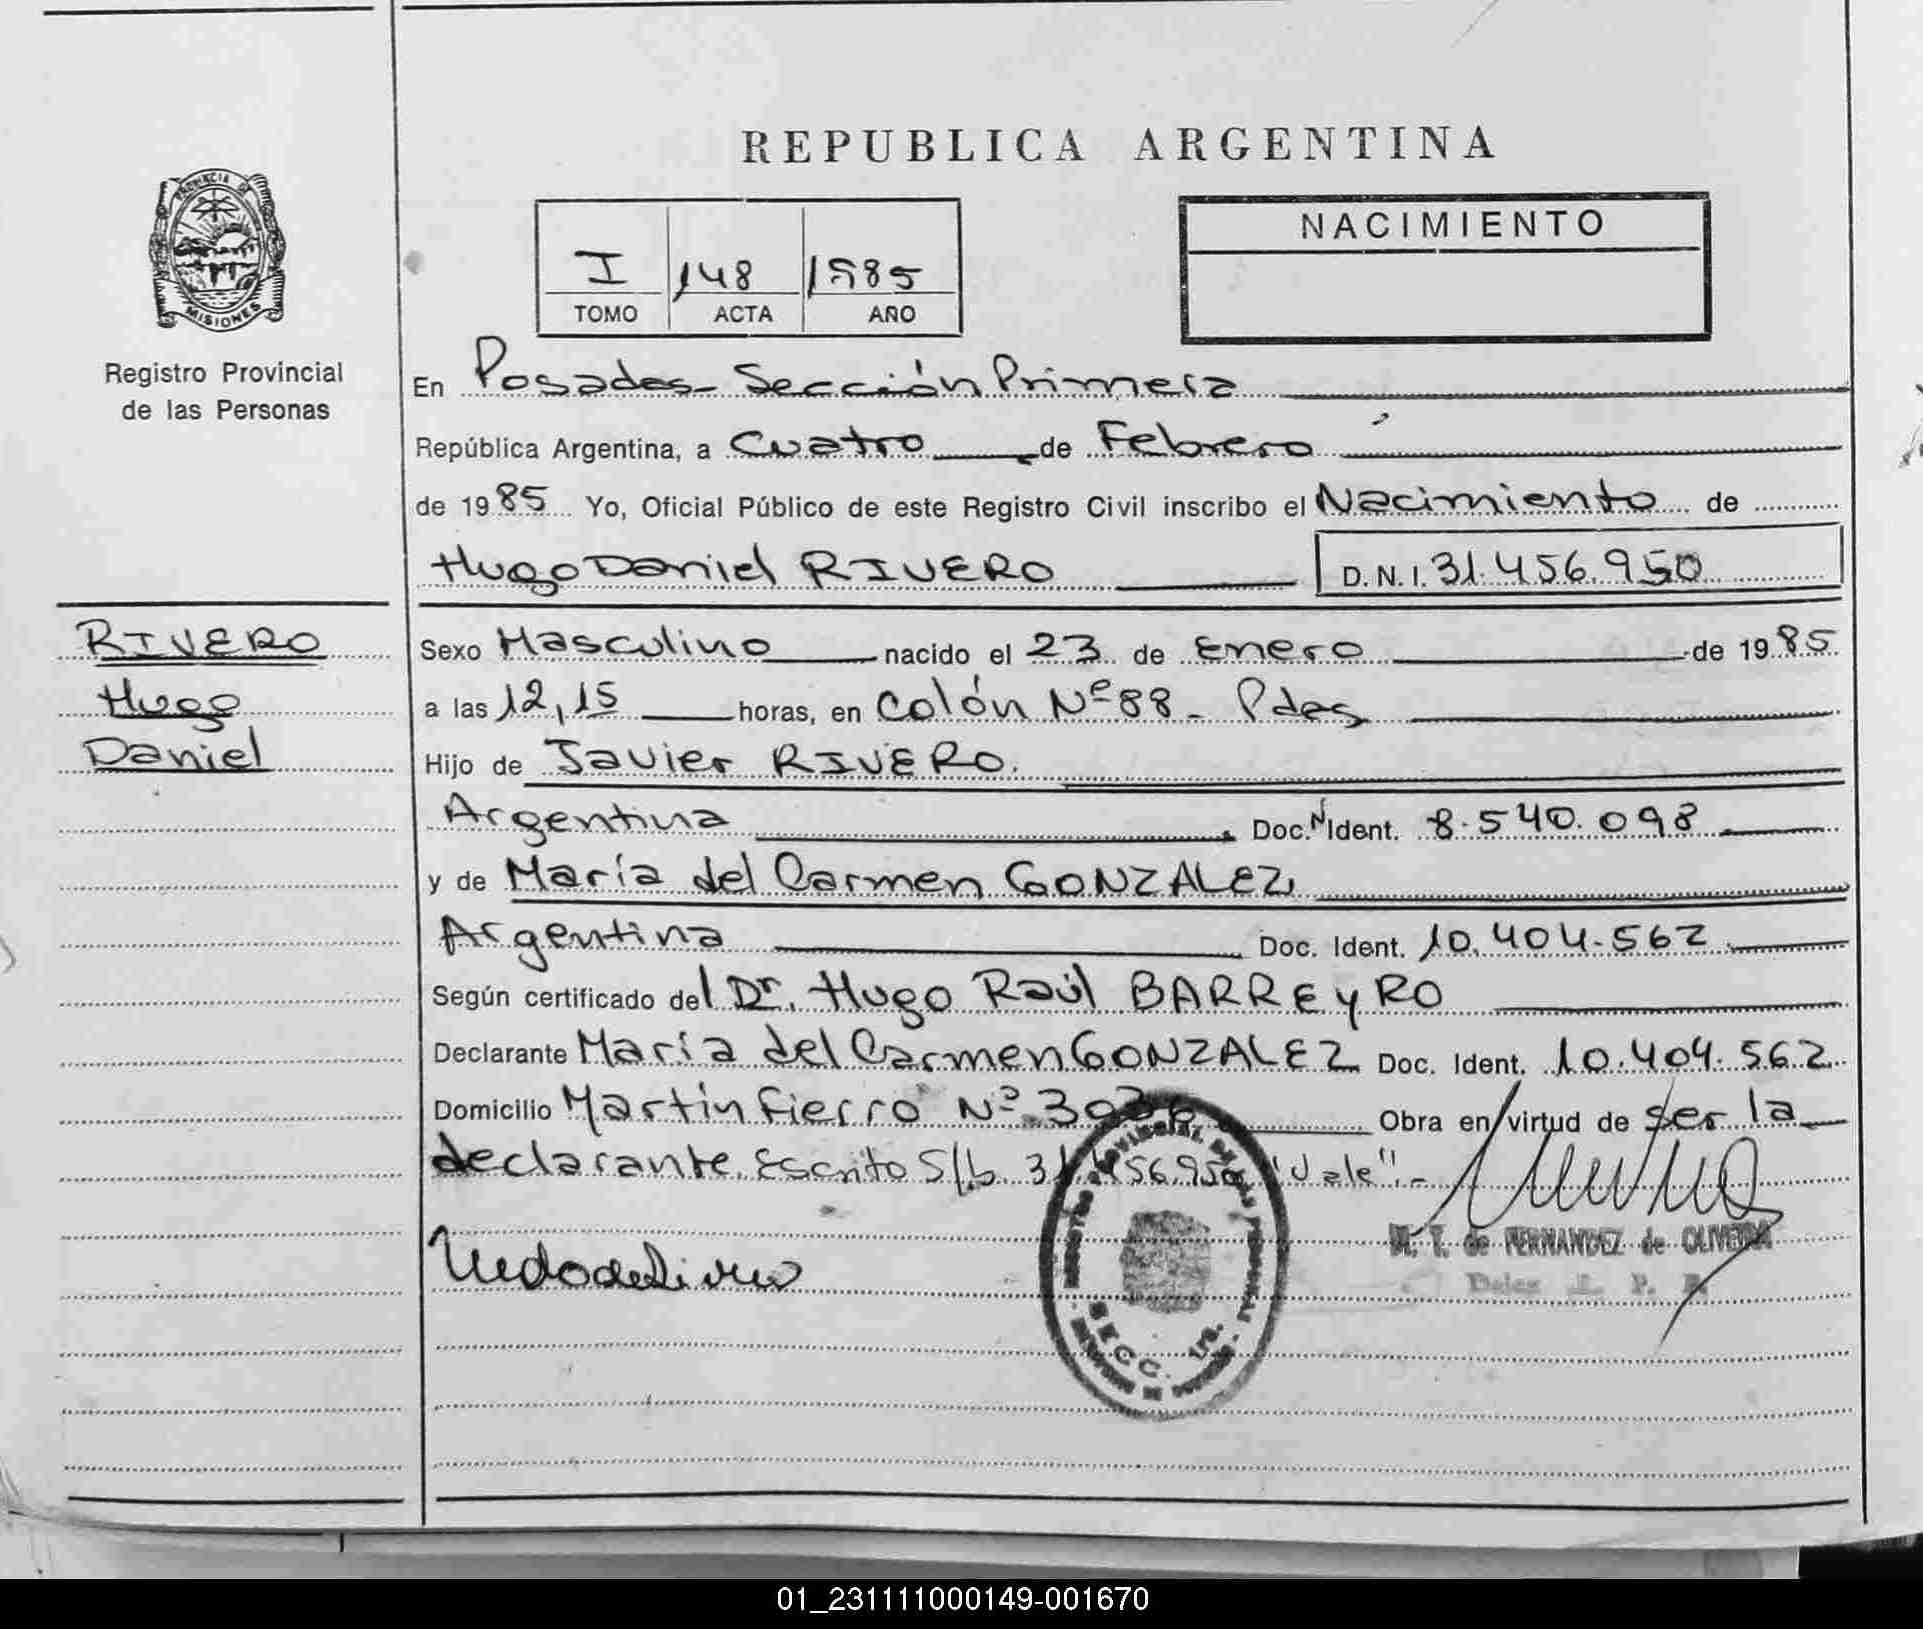 REPUBLICA ARGENTINA
PROVINCIA DE
MISIONES
Registro Provincial
de las Personas
I 148 1985
TOMO ACTA AÑO
NACIMIENTO
En Posadas - Sección Primera
República Argentina, a Cuatro de Febrero
de 1985 Yo, Oficial Público de este Registro Civil inscribo el Nacimiento de
Hugo Daniel RIVERO D.N.I. 31.456.950
RIVERO
Hugo
Daniel
Sexo Masculino nacido el 23 de Enero de 1985
a las 12,15 horas, en Colón Nº 88 - Pdas
Hijo de Javier RIVERO.
Argentina Doc. Ident. 8.540.098
y de María del Carmen GONZALEZ,
Argentina Doc. Ident. 10.404.562
Según certificado del Dr. Hugo Raúl BARREYRO
Declarante María del Carmen GONZALEZ Doc. Ident. 10.404.562
Domicilio Martín Fierro Nº Obra en virtud de ser la
declarante. Escrito S/b. 31.456.950 "Vale".-
M. T. de FERNANDEZ de OLIVEIRA
SECC. 1ra.
01_231111000149-001670